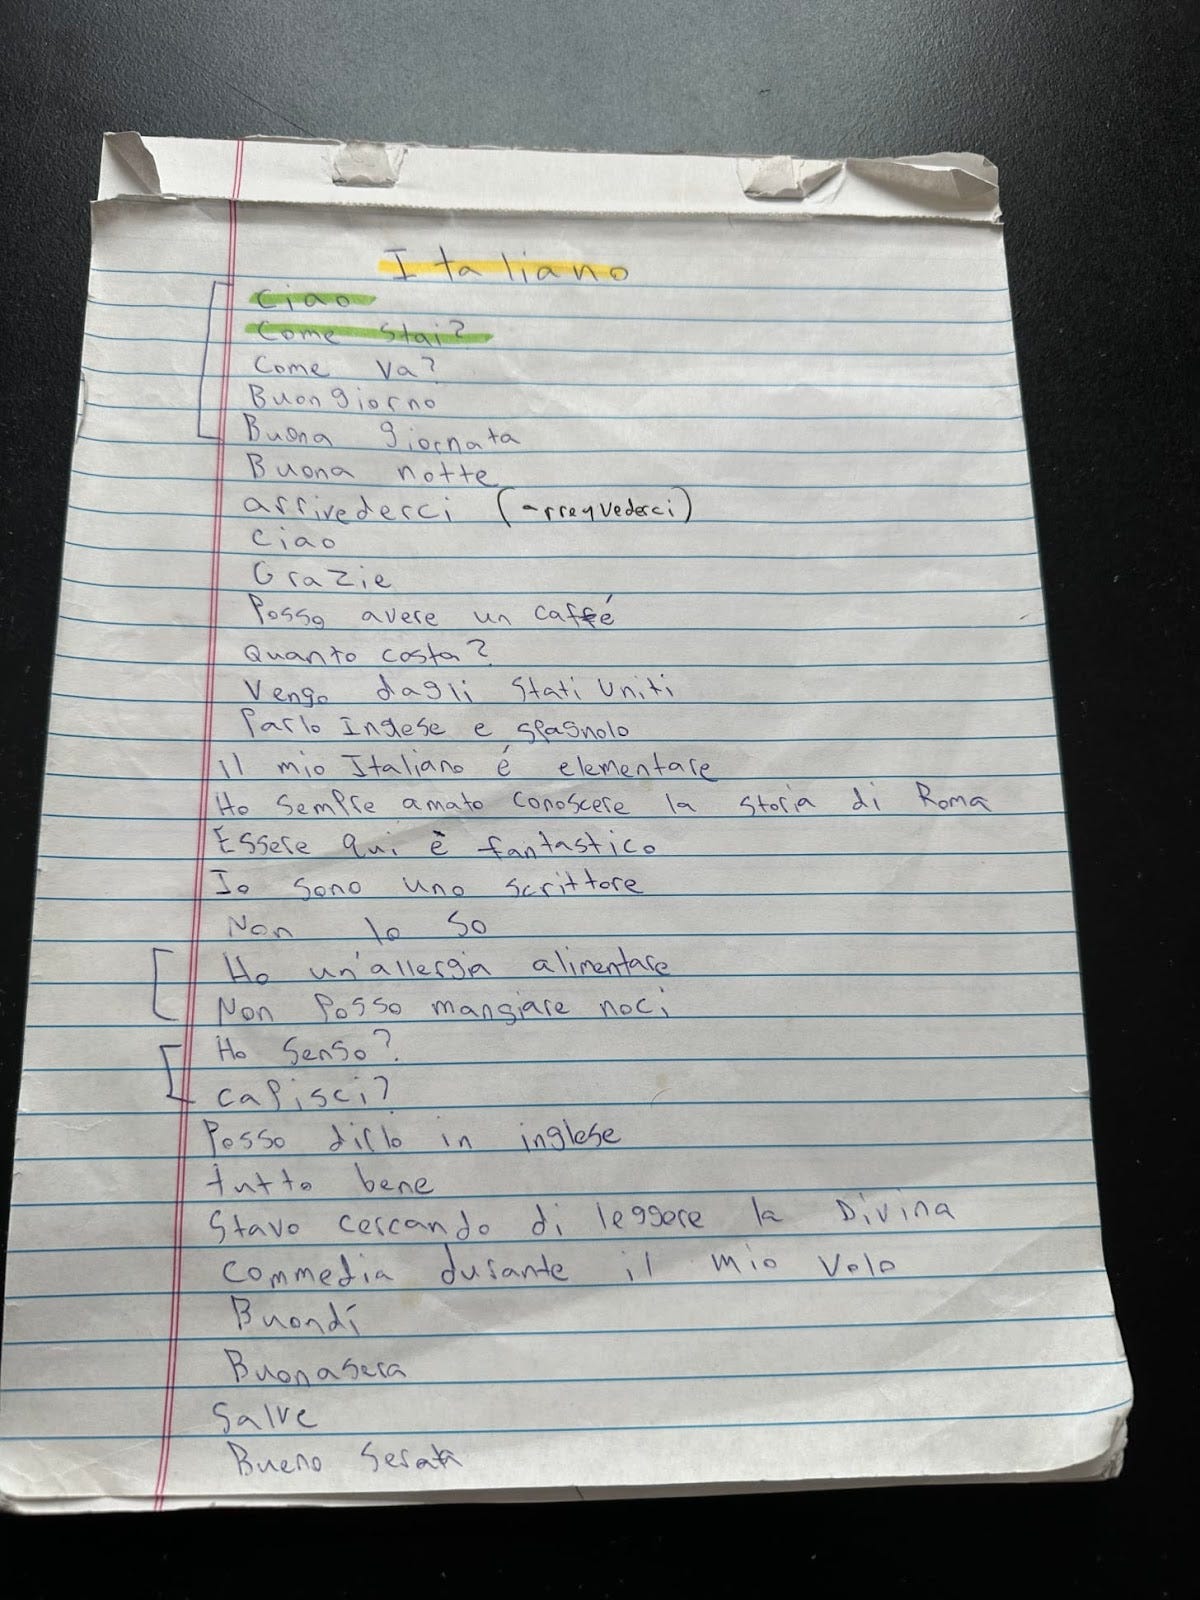 Italiano
Ciao
Come stai?
Come va?
Buongiorno
Buona giornata
Buona notte
arrivederci (arreyvederci)
Ciao
Grazie
Posso avere un caffé
Quanto costa?
Vengo dagli Stati Uniti
Parlo Inglese e spagnolo
il mio Italiano é elementare
Ho sempre amato conoscere la storia di Roma
Essere qui è fantastico
Io sono uno scrittore
Non lo so
Ho un'allergia alimentare
Non posso mangiare noci
Ho senso?
capisci?
Posso dirlo in inglese
tutto bene
Stavo cercando di leggere la Divina
Commedia durante il mio volo
Buondí
Buonasera
Salve
Bueno serata